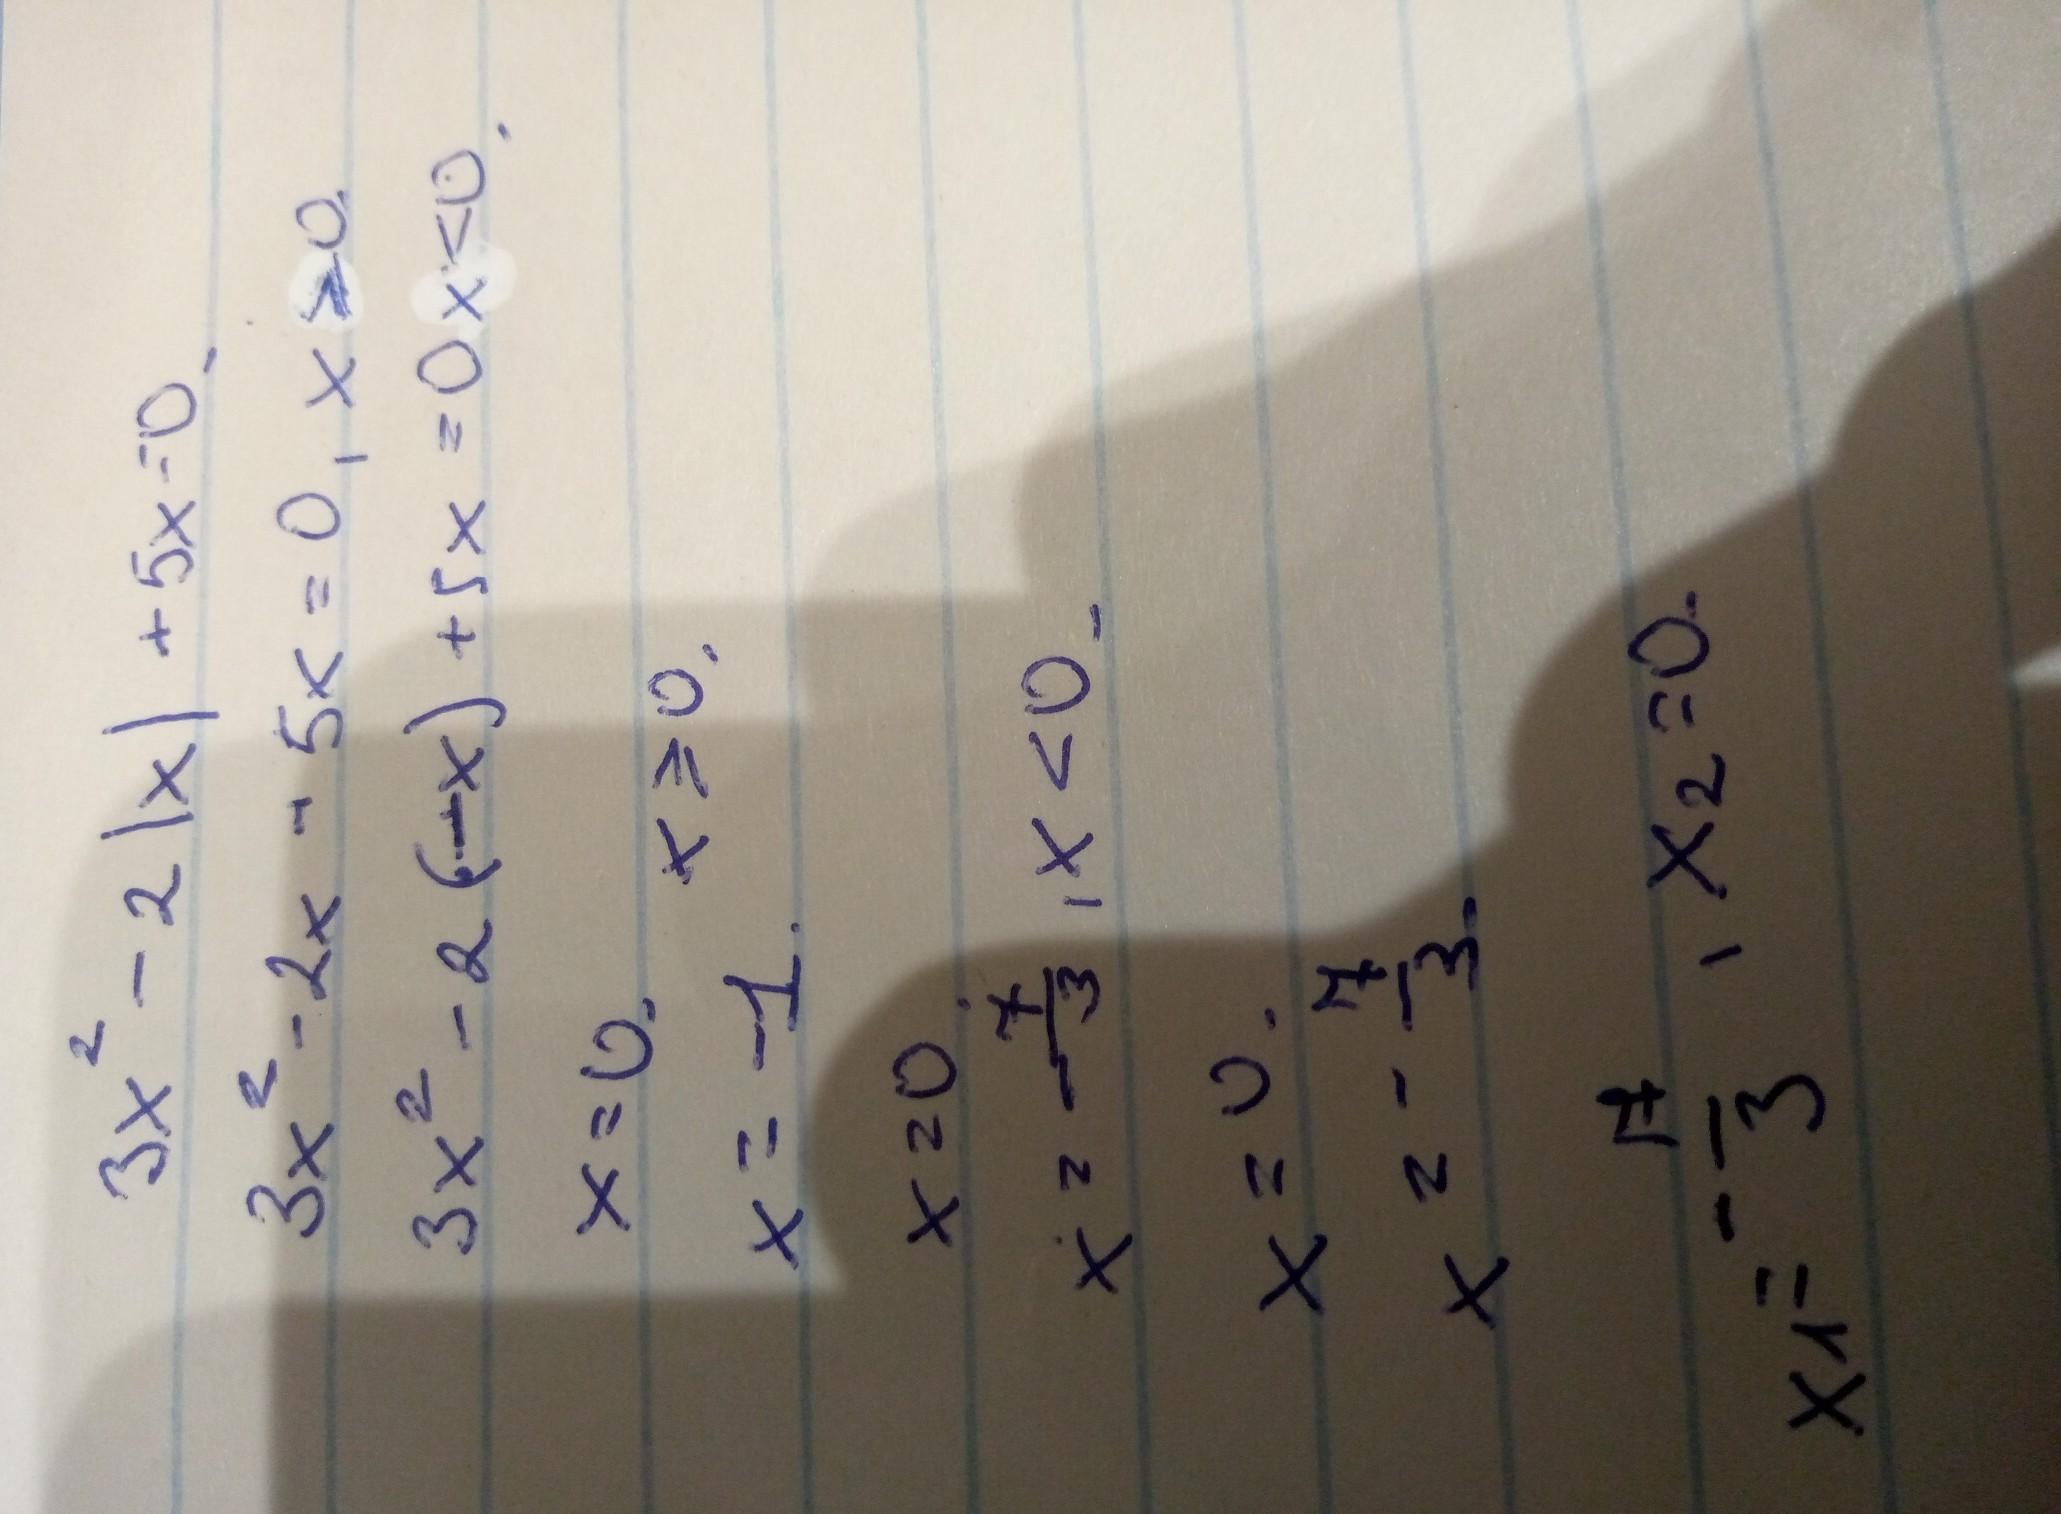 3x² - 2|x| + 5x = 0.
3x² - 2x + 5x = 0, x ≥ 0.
3x² - 2(-x) + 5x = 0 x < 0.
x = 0.
x ≥ 0.
x = -1.
x = 0.
x = -7/3, x < 0.
x = 0.
x = -7/3.
x1 = -7/3, x2 = 0.